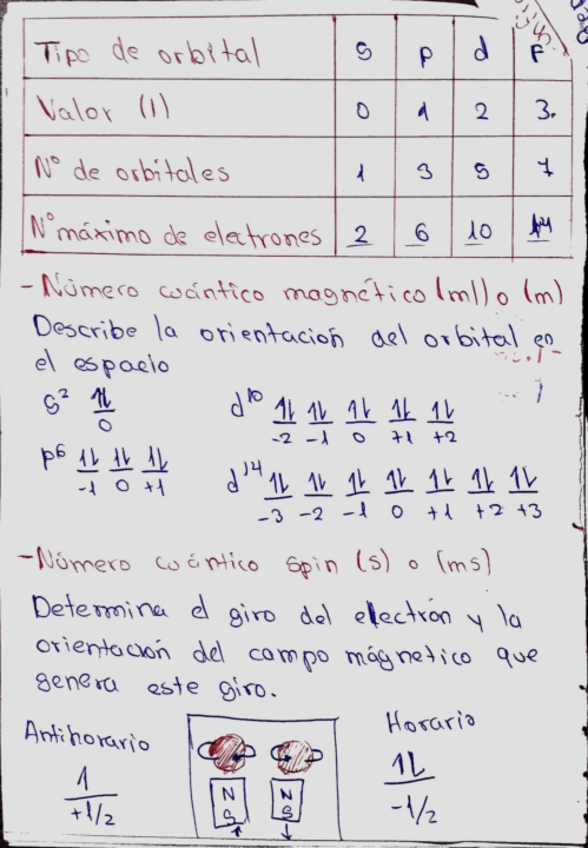 Tipo de orbital s p d F
Valor (l) 0 1 2 3.
N° de orbitales 1 3 5 7
N° máximo de electrones 2 6 10 14
- Número cuántico magnético (ml) o (m)
Describe la orientación del orbital en
el espacio
s² 1L d¹⁰ 1L 1L 1L 1L 1L
0 -2 -1 0 +1 +2
p6 1L 1L 1L d14 1L 1L 1L 1L 1L 1L 1L
-1 0 +1 -3 -2 -1 0 +1 +2 +3
- Número cuántico spin (s) o (ms)
Determina el giro del electrón y la
orientación del campo mágnetico que
genera este giro.
Antihorario Horario
1 1L
+1/2 -1/2
N N
S S